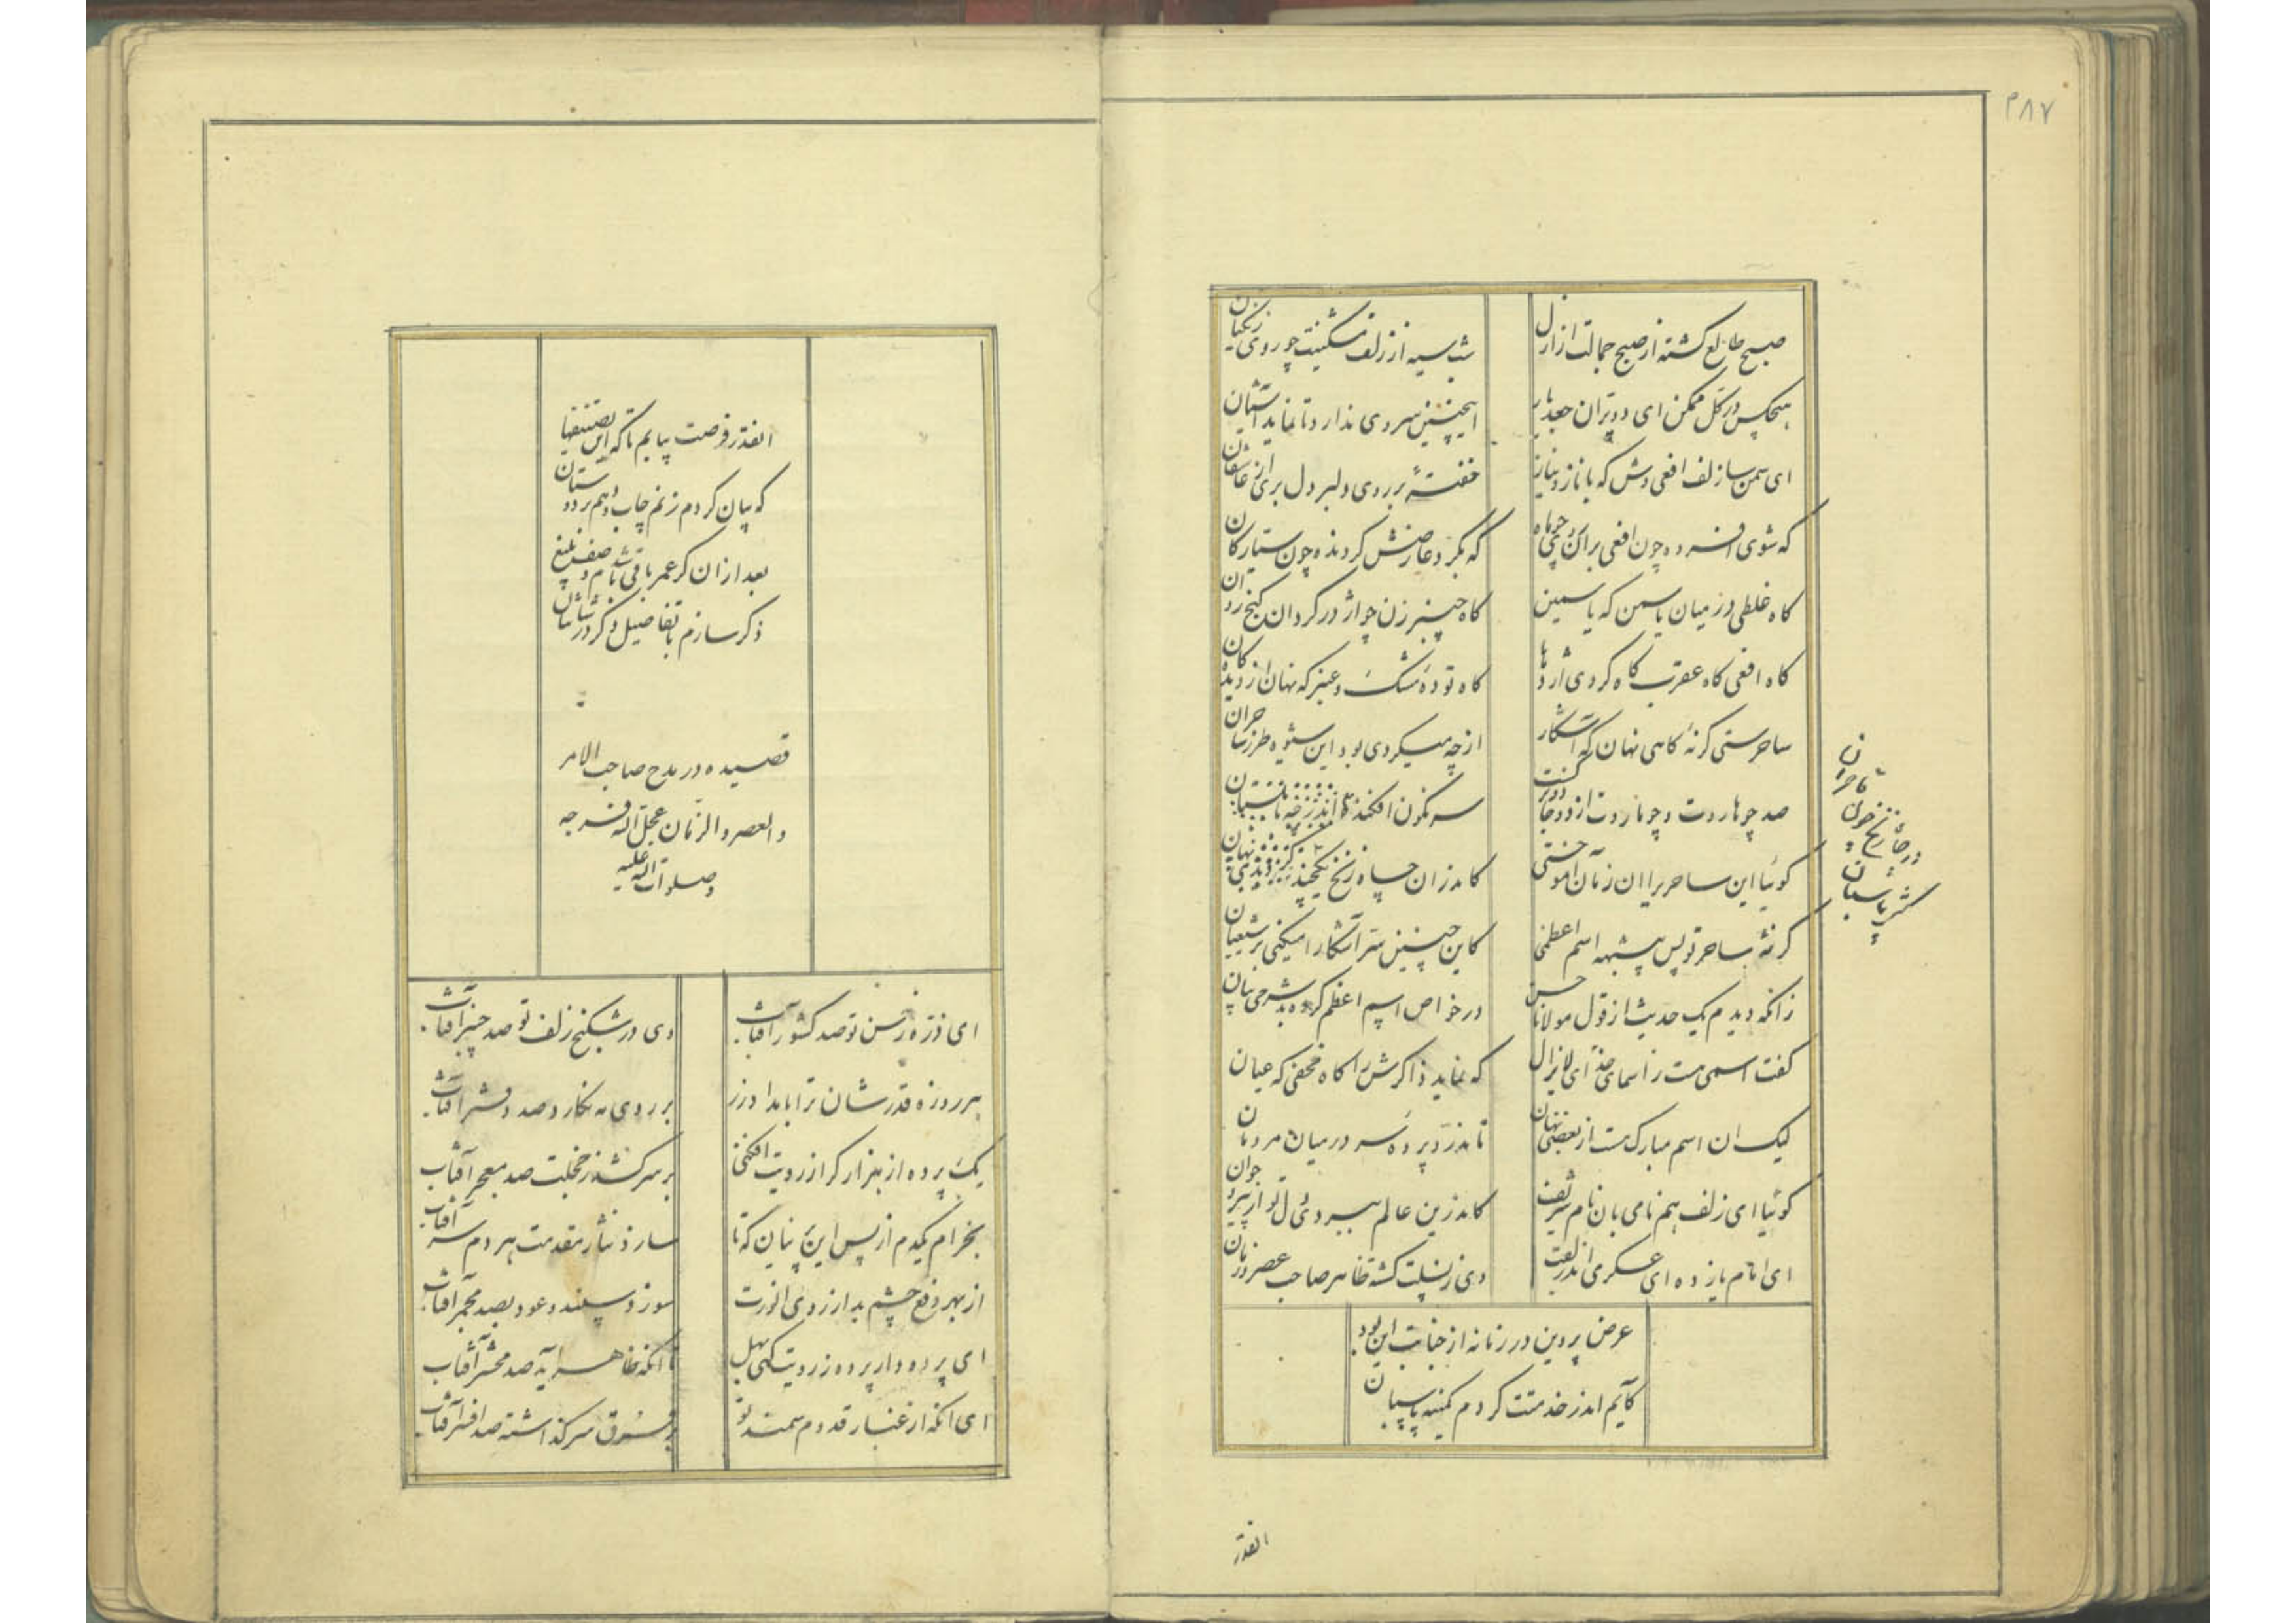 ۲۸۷
صبح طالع گشته از صبح جمالت از ازل
شب سیه از زلف مشکینت چو روی زنگیان
هیچکس در گل ممکن ای دو
اینچنین سروی ندارد تا نماید آشیان
ای سمن سا زلف افعی وش که با ناز و نیاز
خفتهٔ بر روی دلبر دل بری از عاشقان
که شوی افسرده چون افعی بران
که بگرد عارضش گردنده چون ستارگان
کاه غلطی در میان یاسمن که یاسمین
کاه چنبر زن چو اژدر گردان گنج روان
کاه افعی کاه عقرب کاه گردی اژدها
کاه تودهٔ مشک و عنبر که نهان از دیدگان
ساحرستی گرنهٔ کاهی نهان که آشکار
از چه میکردی بود این شیوه طرز ساحران
صد چو هاروت و چو ماروت از دو جادو
سرنگون افکنده اندر چه
گوئیا این ساحر برا ان زمان آموختی
کاندران چاه زنخ
گرنهٔ ساحر تو پس بیشبهه اسم اعظمی
کاین چنین سر آشکارا میکنی بر شیعیان
زانکه دیدم یک حدیث از قول مولانا حسن
در خواص اسم اعظم کرده بد شرحی بیان
گفت اسمی هست ز اسمای خدای لایزال
که نماید ذاکرش را کاه مخفی که عیان
لیک ان اسم مبارک هست از بعضی نهان
تا ندرد پرده سر در میان مردمان
گوئیا ای زلف هم نامی بان نام شریف
کاندرین عالم ببردی دل تو از پیر و جوان
ای امام یازده ای عسکری اندر لقب
وی ز نسلت گشته ظاهر صاحب عصر و زمان
عرض پروین در زمانه از جنابت این بود
کآیم اندر خدمتت گردم کمینه پاسبان
انقدر
انقدر فرصت بیابم تا که این تصنیفها
که بیان کردم زنم چاپ و دهم بر دوستان
بعد ازان گر عمر باقی
ذکر سازم با تفاصیل و
قصیده در مدح صاحب الامر
والعصر والزمان عجل الله فرجه
وصلوات الله علیه
ای ذره ز حسن تو صد کشور آفتاب
وی در شکنج زلف تو صد چنبر آفتاب
هر روزه قدر شان ترا بامداد و زر
بر روی مه نگارد صد دفتر آفتاب
یک پرده از هزار گر از رویت افکنی
بر سر کشد ز خجلت صد معجر آفتاب
بخرام یکدم از پس این پنیان که تا
سازد نثار مقدمت هر دم سر آفتاب
از بهر دفع چشم بد از روی انورت
سوزد سپند و عود بصد مجمر آفتاب
ای پرده دار پرده ز رویت
تا انکه ظاهر آید صد محشر آفتاب
ای انکه از غبار قدوم سمند تو
بر فرق سر گذاشته صد افسر آفتاب